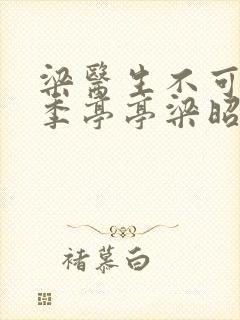 梁醫生不可
季亭亭梁昭
褚慕白